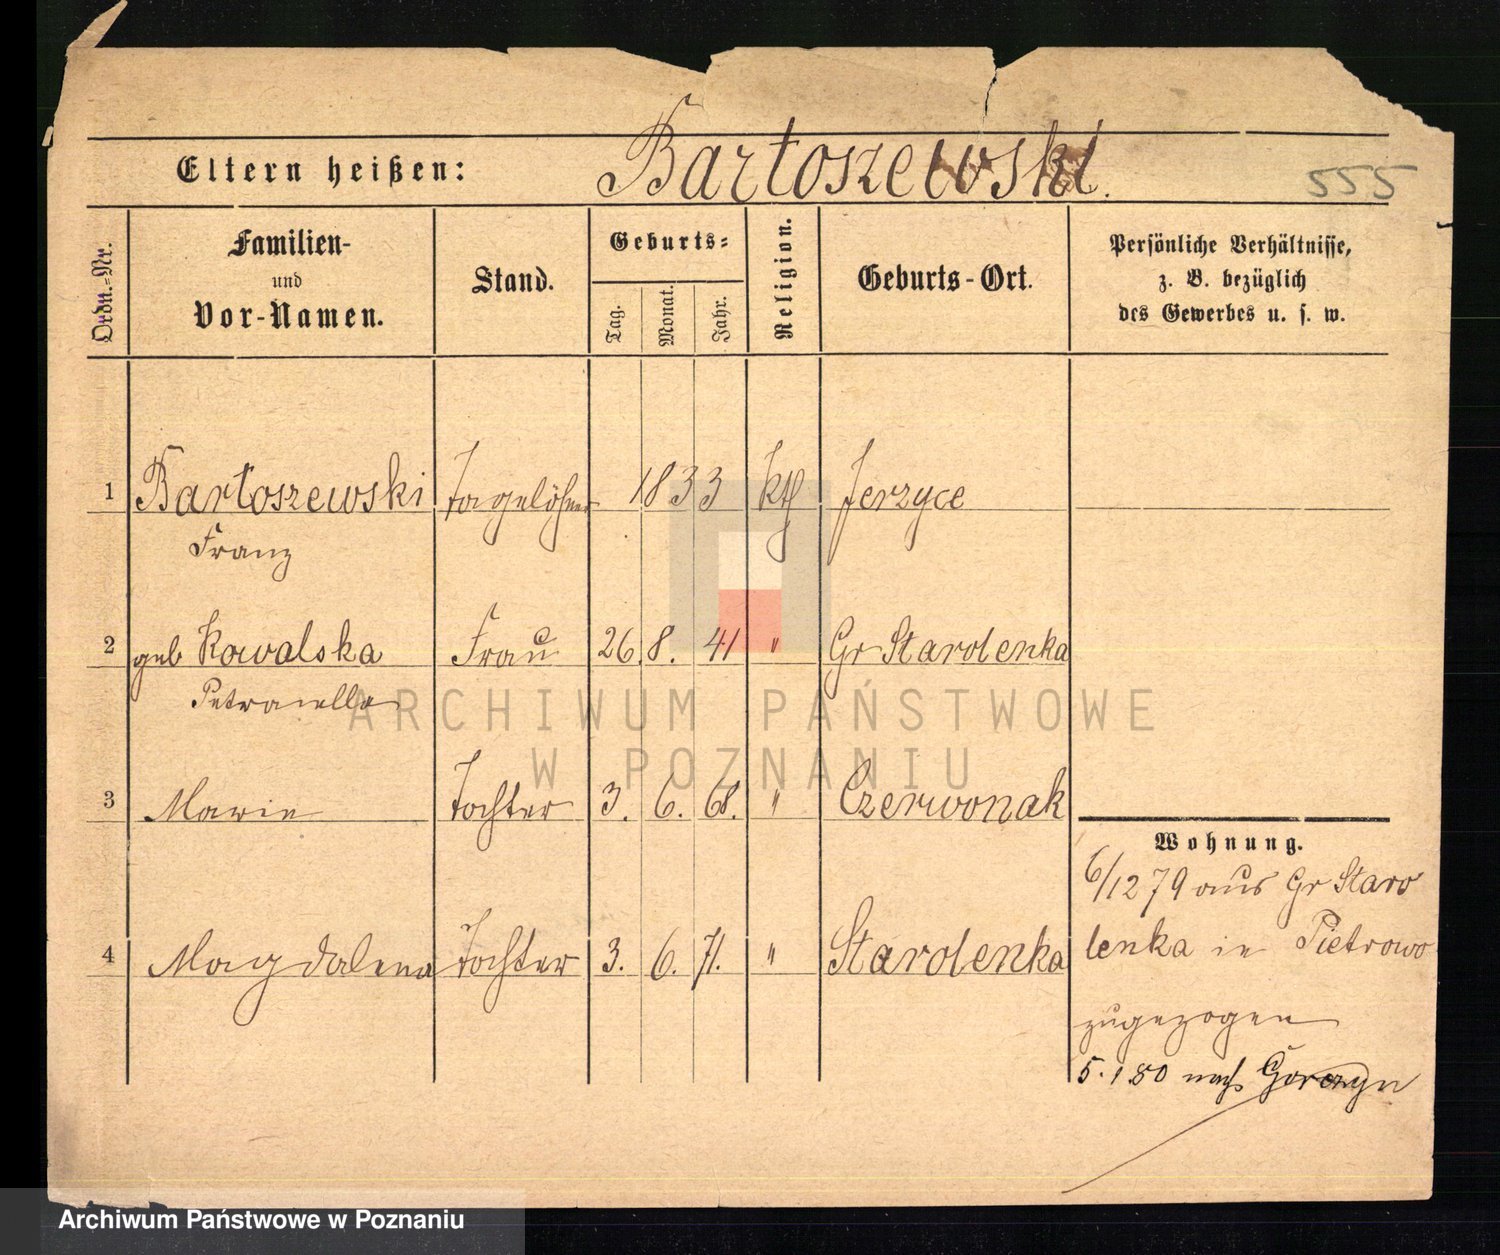 Eltern heißen: Bartoszewski. 555
Ordn.-Nr.
Familien-
und
Vor-Namen.
Stand.
Geburts-
Tag. Monat. Jahr.
Religion.
Geburts-Ort.
Persönliche Verhältnisse,
z. B. bezüglich
des Gewerbes u. s. w.
1 Bartoszewski Tagelöhner 1833 kth Jerzyce
Franz
2 geb Kowalska Frau 26. 8. 41 " Gr Starolenka
Petronella
3 Marie Tochter 3. 6. 68. " Czerwonak
4 Magdalena Tochter 3. 6. 71. " Starolenka
Wohnung.
6/12 79 aus Gr Staro
lenka in Pietrowo
zugezogen
5. 1 80 nach Gorczyn
ARCHIWUM PAŃSTWOWE
W POZNANIU
Archiwum Państwowe w Poznaniu